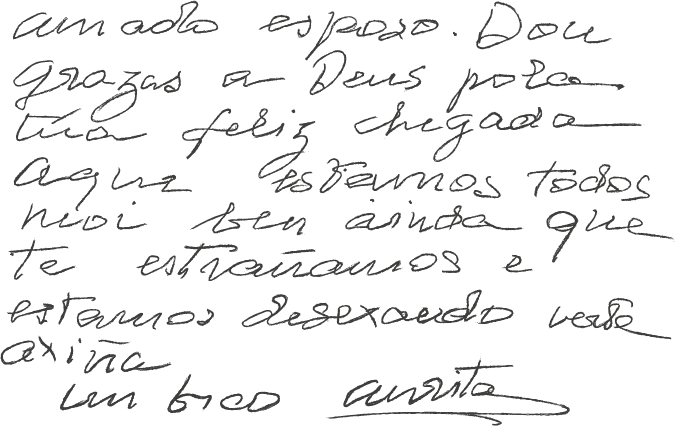 amado esposo. Dou
grazas a Deus pola
túa feliz chegada
aquí estamos todos
moi ben ainda que
te estrañamos e
estamos desexando verte
axiña
un bico Aurita